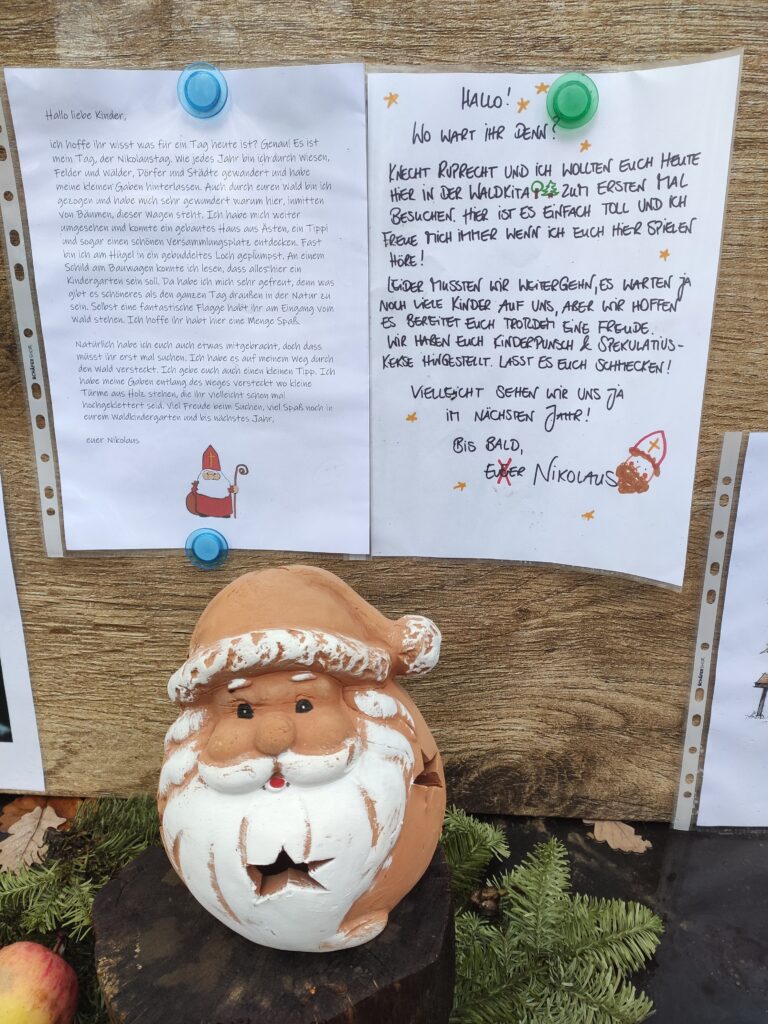 Hallo liebe Kinder,
ich hoffe ihr wisst was für ein Tag heute ist? Genau! Es ist
mein Tag, der Nikolaustag. Wie jedes Jahr bin ich durch Wiesen,
Felder und Wälder, Dörfer und Städte gewandert und habe
meine kleinen Gaben hinterlassen. Auch durch euren Wald bin ich
gezogen und habe mich sehr gewundert warum hier, inmitten
von Bäumen, dieser Wagen steht. Ich habe mich weiter
umgesehen und konnte ein gebautes Haus aus Ästen, ein Tippi
und sogar einen schönen Versammlungsplatz entdecken. Fast
bin ich am Hügel in ein gebuddeltes Loch geplumpst. An einem
Schild am Bauwagen konnte ich lesen, dass alles hier ein
Kindergarten sein soll. Da habe ich mich sehr gefreut, denn was
gibt es schöneres als den ganzen Tag draußen in der Natur zu
sein. Selbst eine fantastische Flagge habt ihr am Eingang vom
Wald stehen. Ich hoffe ihr habt hier eine Menge Spaß.
Natürlich habe ich euch auch etwas mitgebracht, doch das
müsst ihr erst mal suchen. Ich habe es auf meinem Weg durch
den Wald versteckt. Ich gebe euch auch einen kleinen Tipp. Ich
habe meine Gaben entlang des Weges versteckt wo kleine
Türme aus Holz stehen, die ihr vielleicht schon mal
hochgeklettert seid. Viel Freude beim Suchen, viel Spaß noch in
eurem Waldkindergarten und bis nächstes Jahr,
euer Nikolaus
HALLO!
WO WART IHR DENN?
KNECHT RUPRECHT UND ICH WOLLTEN EUCH HEUTE
HIER IN DER WALDKITA ZUM ERSTEN MAL
BESUCHEN. HIER IST ES EINFACH TOLL UND ICH
FREUE MICH IMMER WENN ICH EUCH HIER SPIELEN
HÖRE!
LEIDER MUSSTEN WIR WEITERGEHN, ES WARTEN JA
NOCH VIELE KINDER AUF UNS, ABER WIR HOFFEN
ES BEREITET EUCH TROTZDEM EINE FREUDE.
WIR HABEN EUCH KINDERPUNSCH & SPEKULATIUS-
KEKSE HINGESTELLT. LASST ES EUCH SCHMECKEN!
VIELLEICHT SEHEN WIR UNS JA
IM NÄCHSTEN JAHR!
BIS BALD,
EUER NIKOLAUS